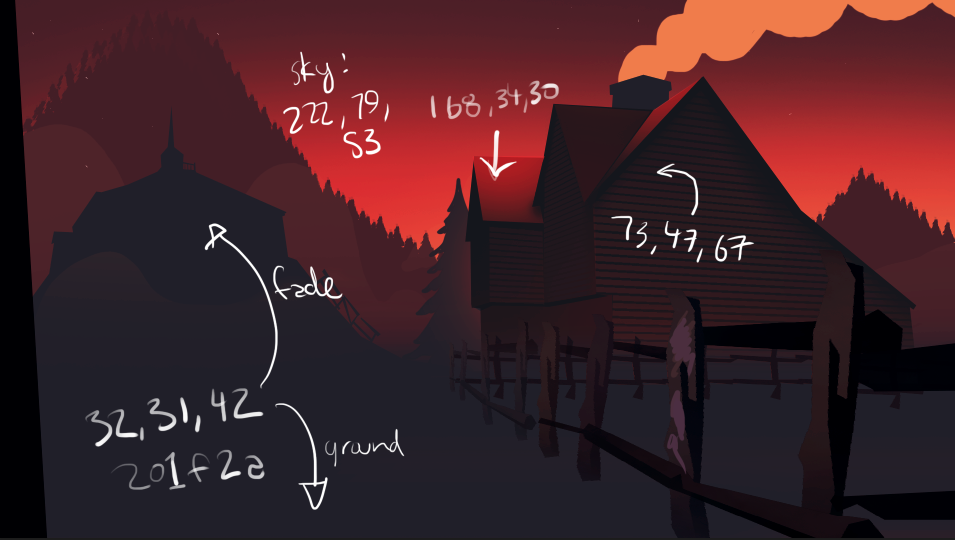 sky:
222, 79,
53
168,34,30
73,47,67
fade
32,31,42
201f2a
ground